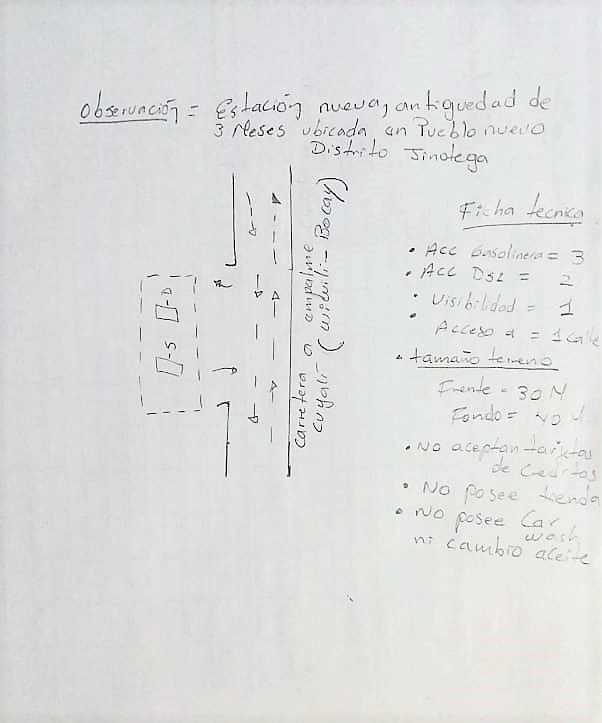 Observación = Estación nueva, antiguedad de
3 Meses ubicada en Pueblo nuevo
Distrito Jinotega
Ficha tecnica
• Acc Gasolinera = 3
• Acc DSL = 2
• Visibilidad = 1
• Acceso a = 1 calle
• tamaño terreno
Frente = 30 M
Fondo = 40 M
• No aceptan tarjetas
de creditos
• No posee tienda
• No posee Car
wash
ni cambio aceite
D
S
Carretera a empalme
cuyali (wiwili - Bocay)